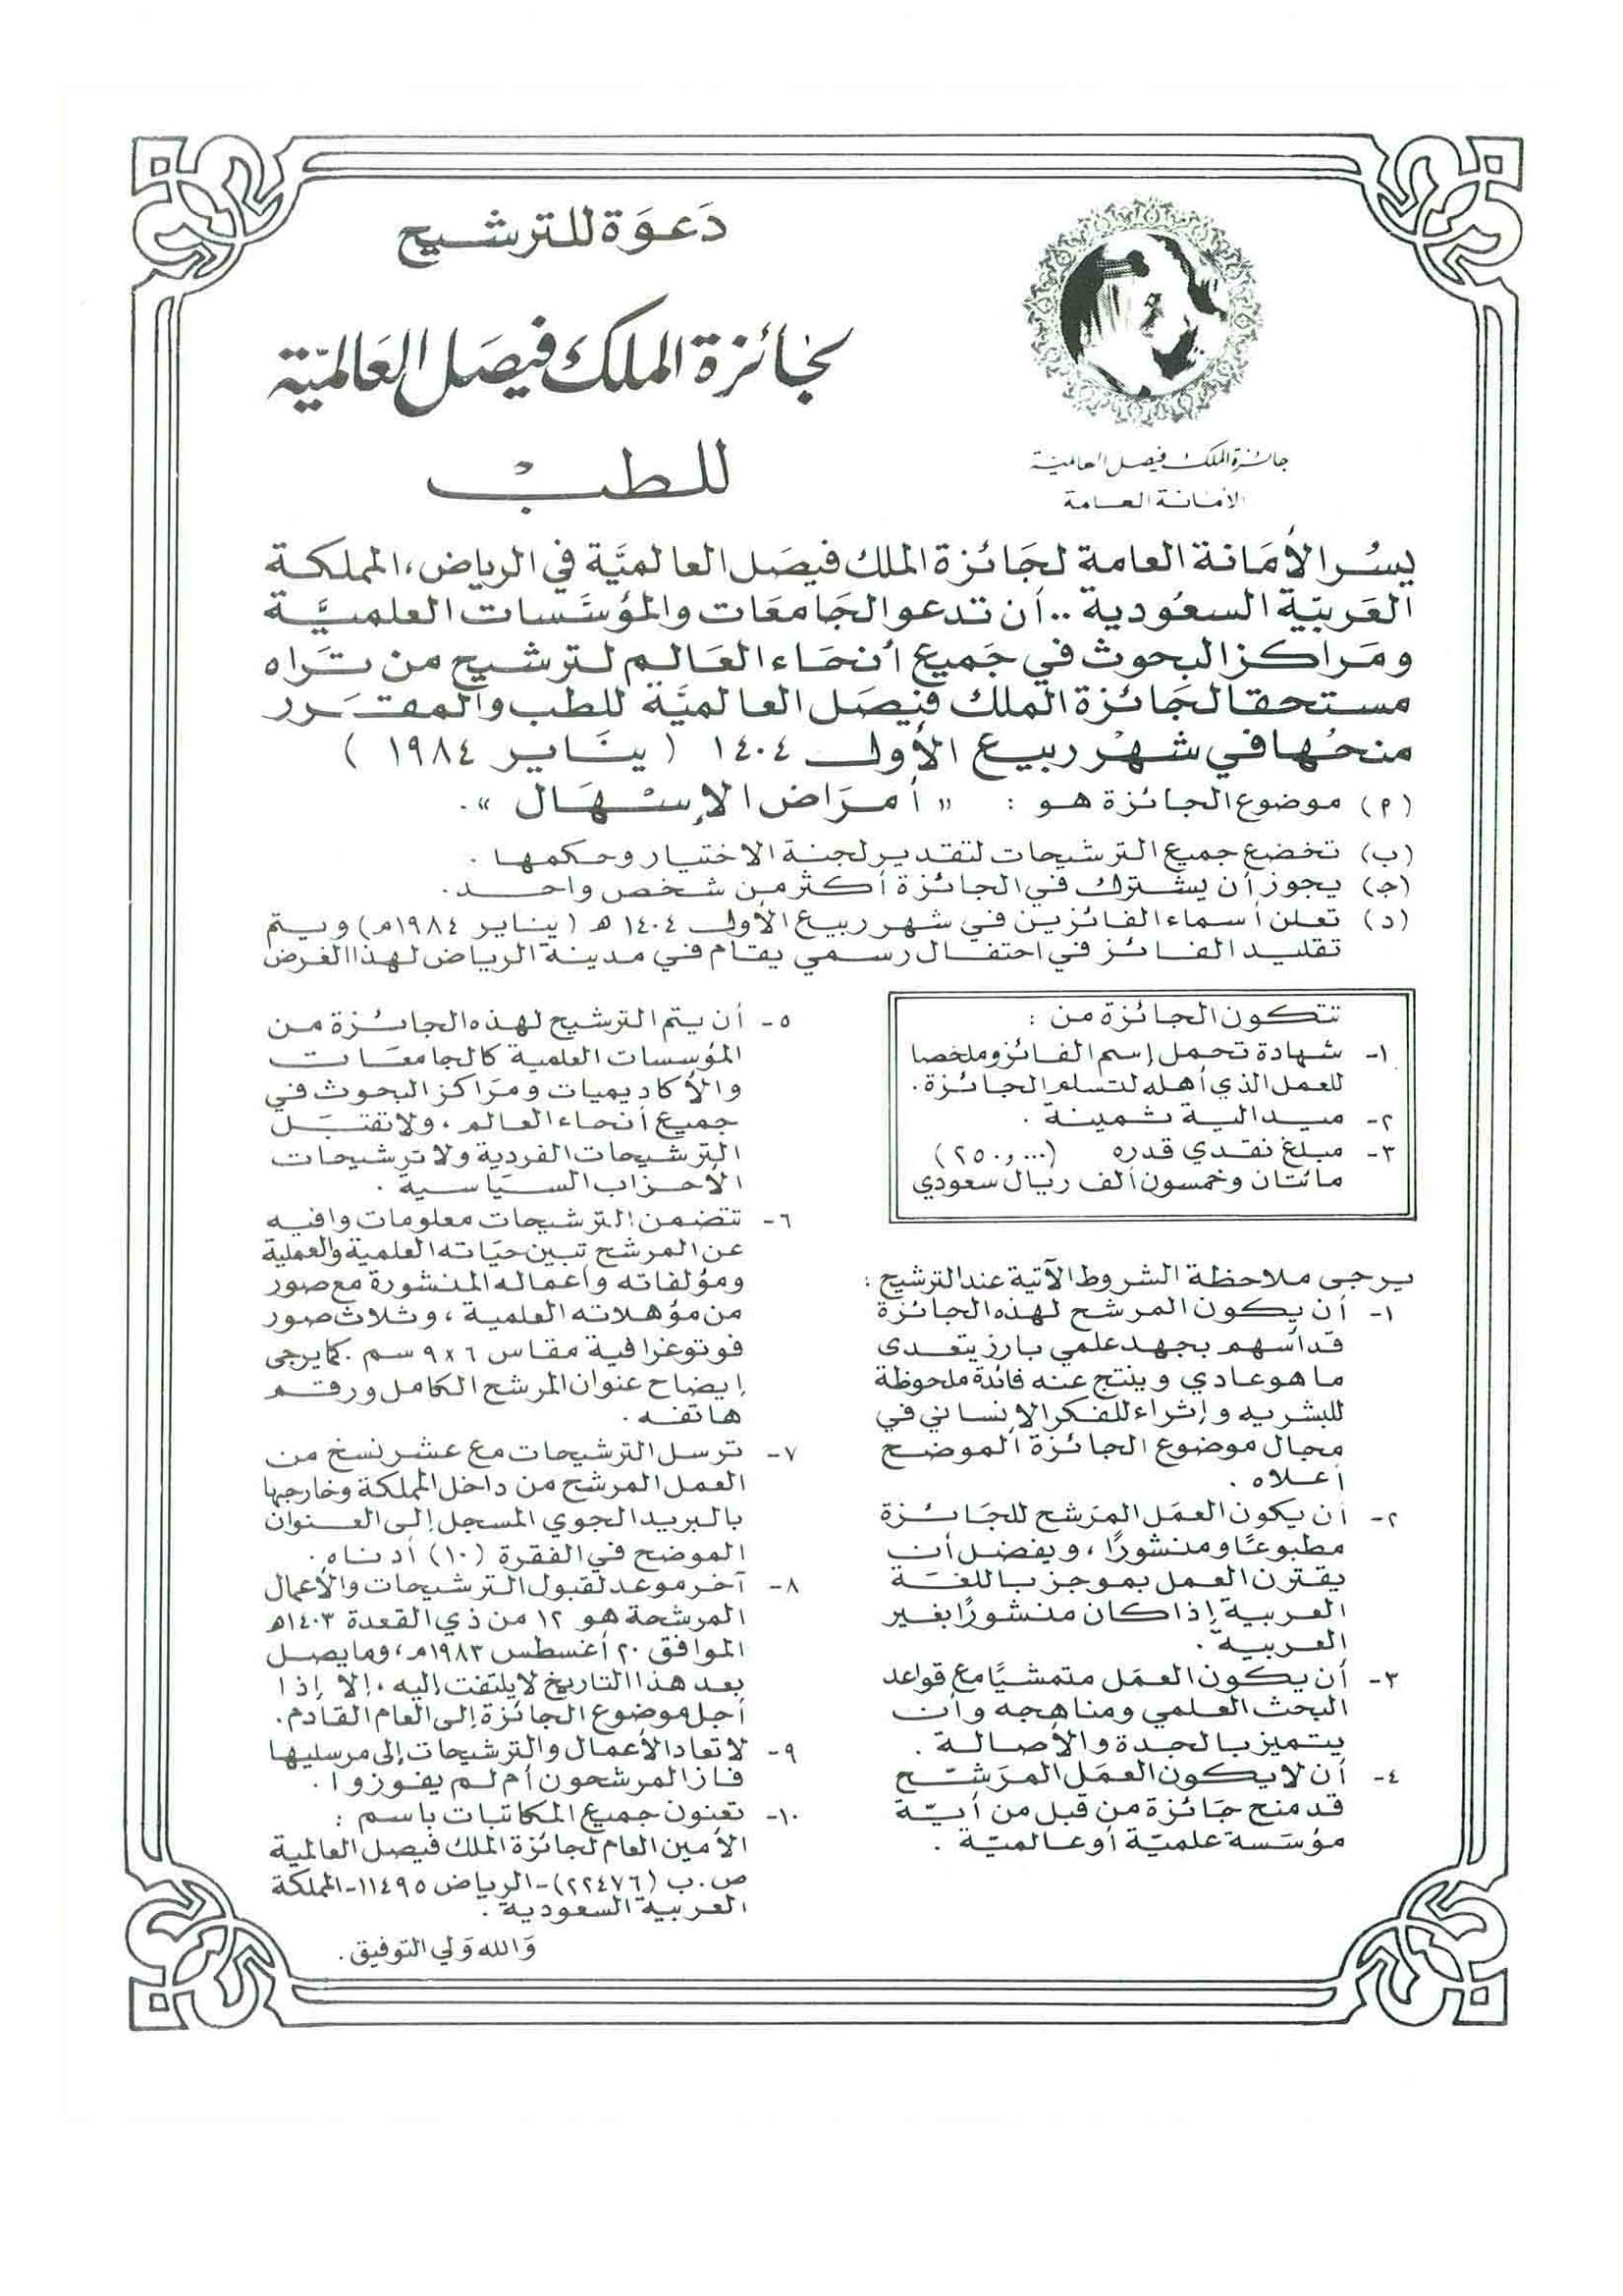 دَعوَة للترشيح
لجَائزة الملك فيصَل العَالميّة
للطب
جائزة الملك فيصل العالمية
الأمانة العامة
يسُر الأمَانة العامة لجَائزة الملك فيصَل العالميَّة في الرياض، المملكة
العَربيّة السعُودية .. أن تدعو الجَامعَات والمؤسَّسات العلميَّة
ومَراكز البحوث في جَميع أنحَاء العَالم لترشيح من تَراه
مستحقا لجَائزة الملك فيصَل العالميَّة للطب والمقَرر
منحُها في شهْر ربيع الأول ١٤٠٤ ( ينَاير ١٩٨٤ )
(م) موضوع الجائزة هو : « أمرَاض الإسْهَال » .
(ب) تخضع جميع الترشيحات لتقدير لجنة الاختيار وحكمها .
(ج) يجوز أن يشترك في الجائزة أكثر من شخص واحد .
(د) تعلن أسماء الفائزين في شهر ربيع الأول ١٤٠٤ هـ ( يناير ١٩٨٤م ) ويتم
تقليد الفائز في احتفال رسمي يقام في مدينة الرياض لهذا الغرض
تتكون الجائزة من :
١- شهادة تحمل إسم الفائز وملخصا
للعمل الذي أهله لتسلم الجائزة .
٢- ميدالية ثمينة .
٣- مبلغ نقدي قدره (٢٥٠,٠٠٠)
مائتان وخمسون ألف ريال سعودي
يرجى ملاحظة الشروط الآتية عند الترشيح :
١- أن يكون المرشح لهذه الجائزة
قد أسهم بجهد علمي بارز يتعدى
ما هو عادي وينتج عنه فائدة ملحوظة
للبشريه وإثراء للفكر الإنساني في
مجال موضوع الجائزة الموضح
أعلاه .
٢- أن يكون العمَل المرَشح للجَائزة
مطبوعًا ومنشورًا ، ويفضل أن
يقترن العمل بموجز باللغة
العربية إذا كان منشورًا بغير
العربية .
٣- أن يكون العمَل متمشيًا مع قواعد
البحث العلمي ومناهجه وأن
يتميز بالجدة والأصالة .
٤- أن لا يكون العمَل المرَشّح
قد منح جَائزة من قبل من أيّة
مؤسَسة علميّة أو عالميّة .
٥- أن يتم الترشيح لهذه الجائزة من
المؤسسات العلمية كالجامعَات
والأكاديميات ومرَاكز البحوث في
جميع أنحاء العالم ، ولا تقبَل
الترشيحات الفردية ولا ترشيحات
الأحزاب السيَاسية .
٦- تتضمن الترشيحات معلومات وافيه
عن المرشح تبين حيَاته العلمية والعملية
ومؤلفاته وأعماله المنشورة مع صور
من مؤهلاته العلمية ، وثلاث صور
فوتوغرافية مقاس ٦×٩ سم . كما يرجى
إيضاح عنوان المرشح الكامل ورقم
هاتفه .
٧- ترسل الترشيحات مع عشر نسخ من
العمل المرشح من داخل المملكة وخارجها
بالبريد الجوي المسجل إلى العنوان
الموضح في الفقرة (١٠) أدناه .
٨- آخر موعد لقبول الترشيحات والأعمال
المرشحة هو ١٢ من ذي القعدة ١٤٠٣هـ
الموافق ٢٠ أغسطس ١٩٨٣م، وما يصل
بعد هذا التاريخ لا يلتفت إليه ، إلا إذا
أجل موضوع الجائزة إلى العام القادم .
٩- لا تعاد الأعمال والترشيحات إلى مرسليها
فاز المرشحون أم لم يفوزوا .
١٠- تعنون جميع المكاتبات باسم :
الأمين العام لجائزة الملك فيصل العالمية
ص.ب (٢٢٤٧٦)-الرياض ١١٤٩٥-المملكة
العربية السعودية .
وَالله وَلي التوفيق .